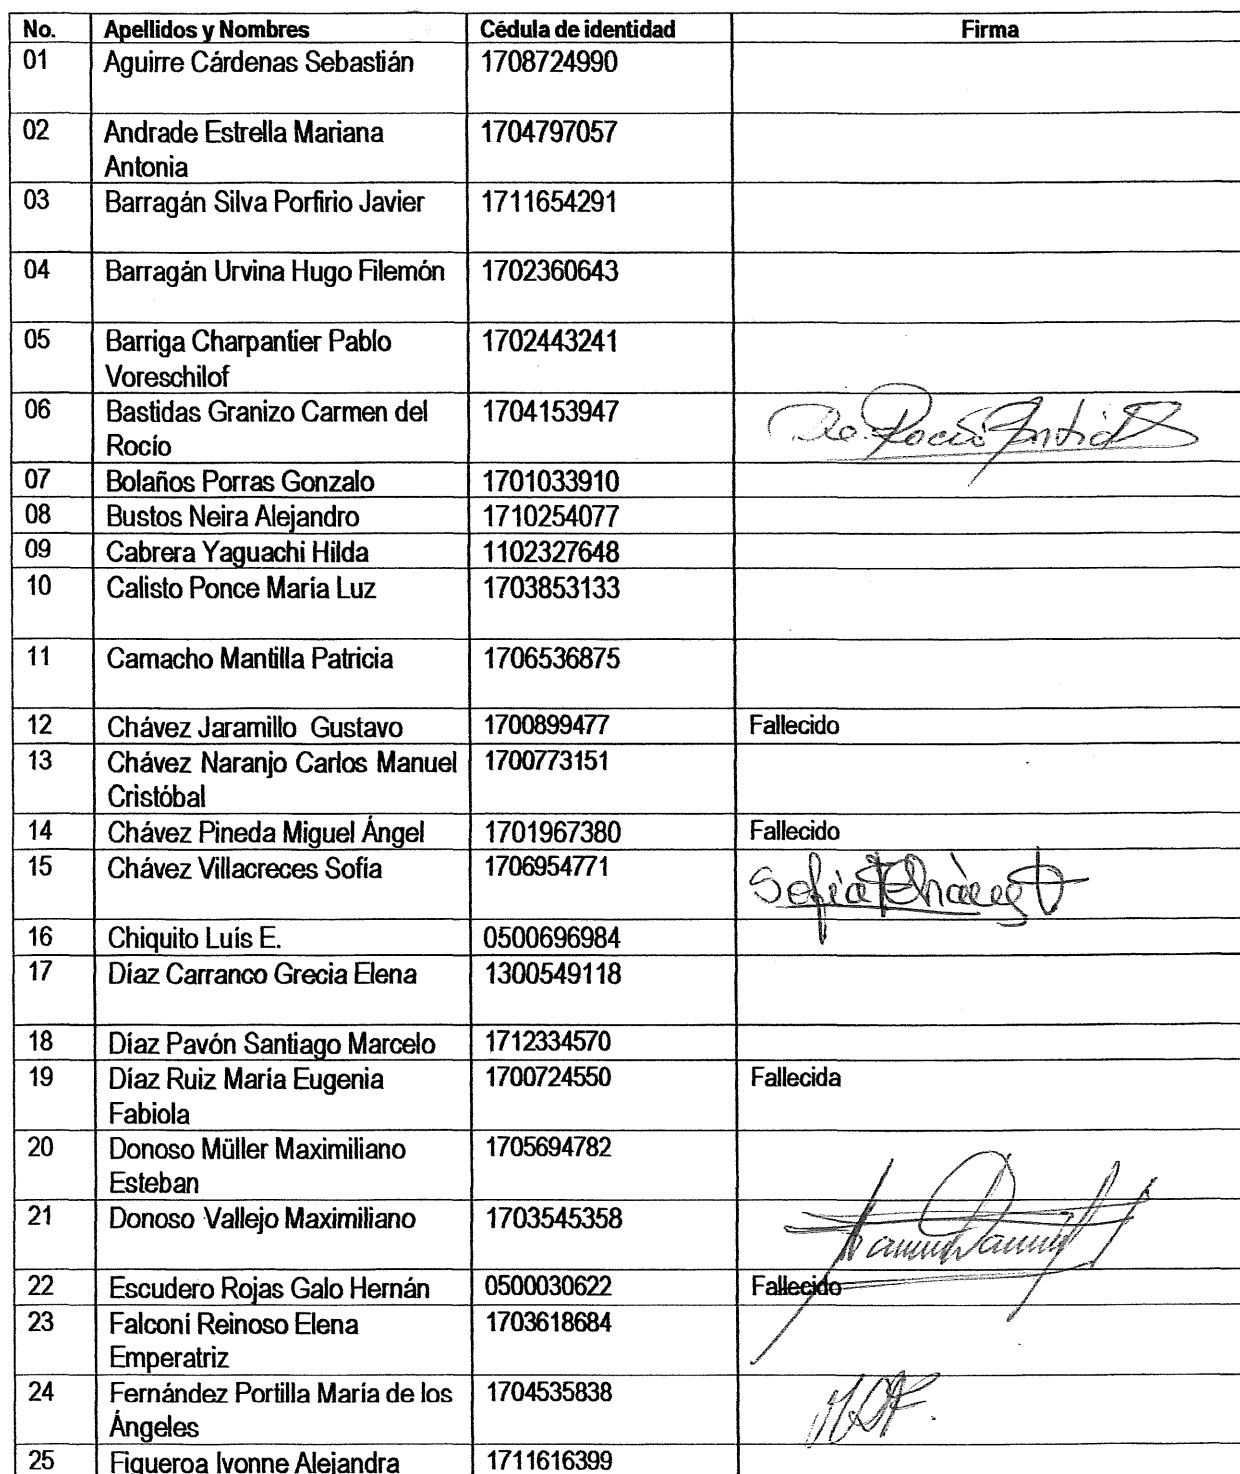 No. Apellidos y Nombres Cédula de identidad Firma
01 Aguirre Cárdenas Sebastián 1708724990
02 Andrade Estrella Mariana 1704797057
Antonia
03 Barragán Silva Porfirio Javier 1711654291
04 Barragán Urvina Hugo Filemón 1702360643
05 Barriga Charpantier Pablo 1702443241
Voreschilof
06 Bastidas Granizo Carmen del 1704153947 Rocío
Rocío
07 Bolaños Porras Gonzalo 1701033910
08 Bustos Neira Alejandro 1710254077
09 Cabrera Yaguachi Hilda 1102327648
10 Calisto Ponce María Luz 1703853133
11 Camacho Mantilla Patricia 1706536875
12 Chávez Jaramillo Gustavo 1700899477 Fallecido
13 Chávez Naranjo Carlos Manuel 1700773151
Cristóbal
14 Chávez Pineda Miguel Ángel 1701967380 Fallecido
15 Chávez Villacreces Sofía 1706954771 Sofía Chávez
16 Chiquito Luís E. 0500696984
17 Díaz Carranco Grecia Elena 1300549118
18 Díaz Pavón Santiago Marcelo 1712334570
19 Díaz Ruiz María Eugenia 1700724550 Fallecida
Fabiola
20 Donoso Müller Maximiliano 1705694782
Esteban
21 Donoso Vallejo Maximiliano 1703545358
22 Escudero Rojas Galo Hernán 0500030622 Fallecido
23 Falconí Reinoso Elena 1703618684
Emperatriz
24 Fernández Portilla María de los 1704535838
Ángeles
25 Figueroa Ivonne Alejandra 1711616399